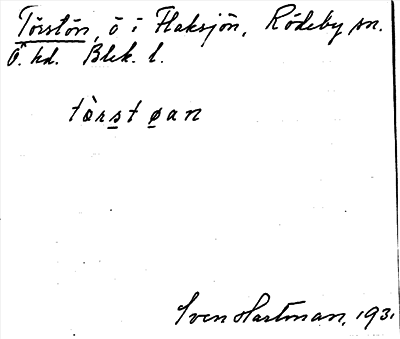 Törstön, ö i Flaksjön, Rödeby sn.
Ö. hd. Blek. l.
tòrst øan
Sven Hartman, 1931